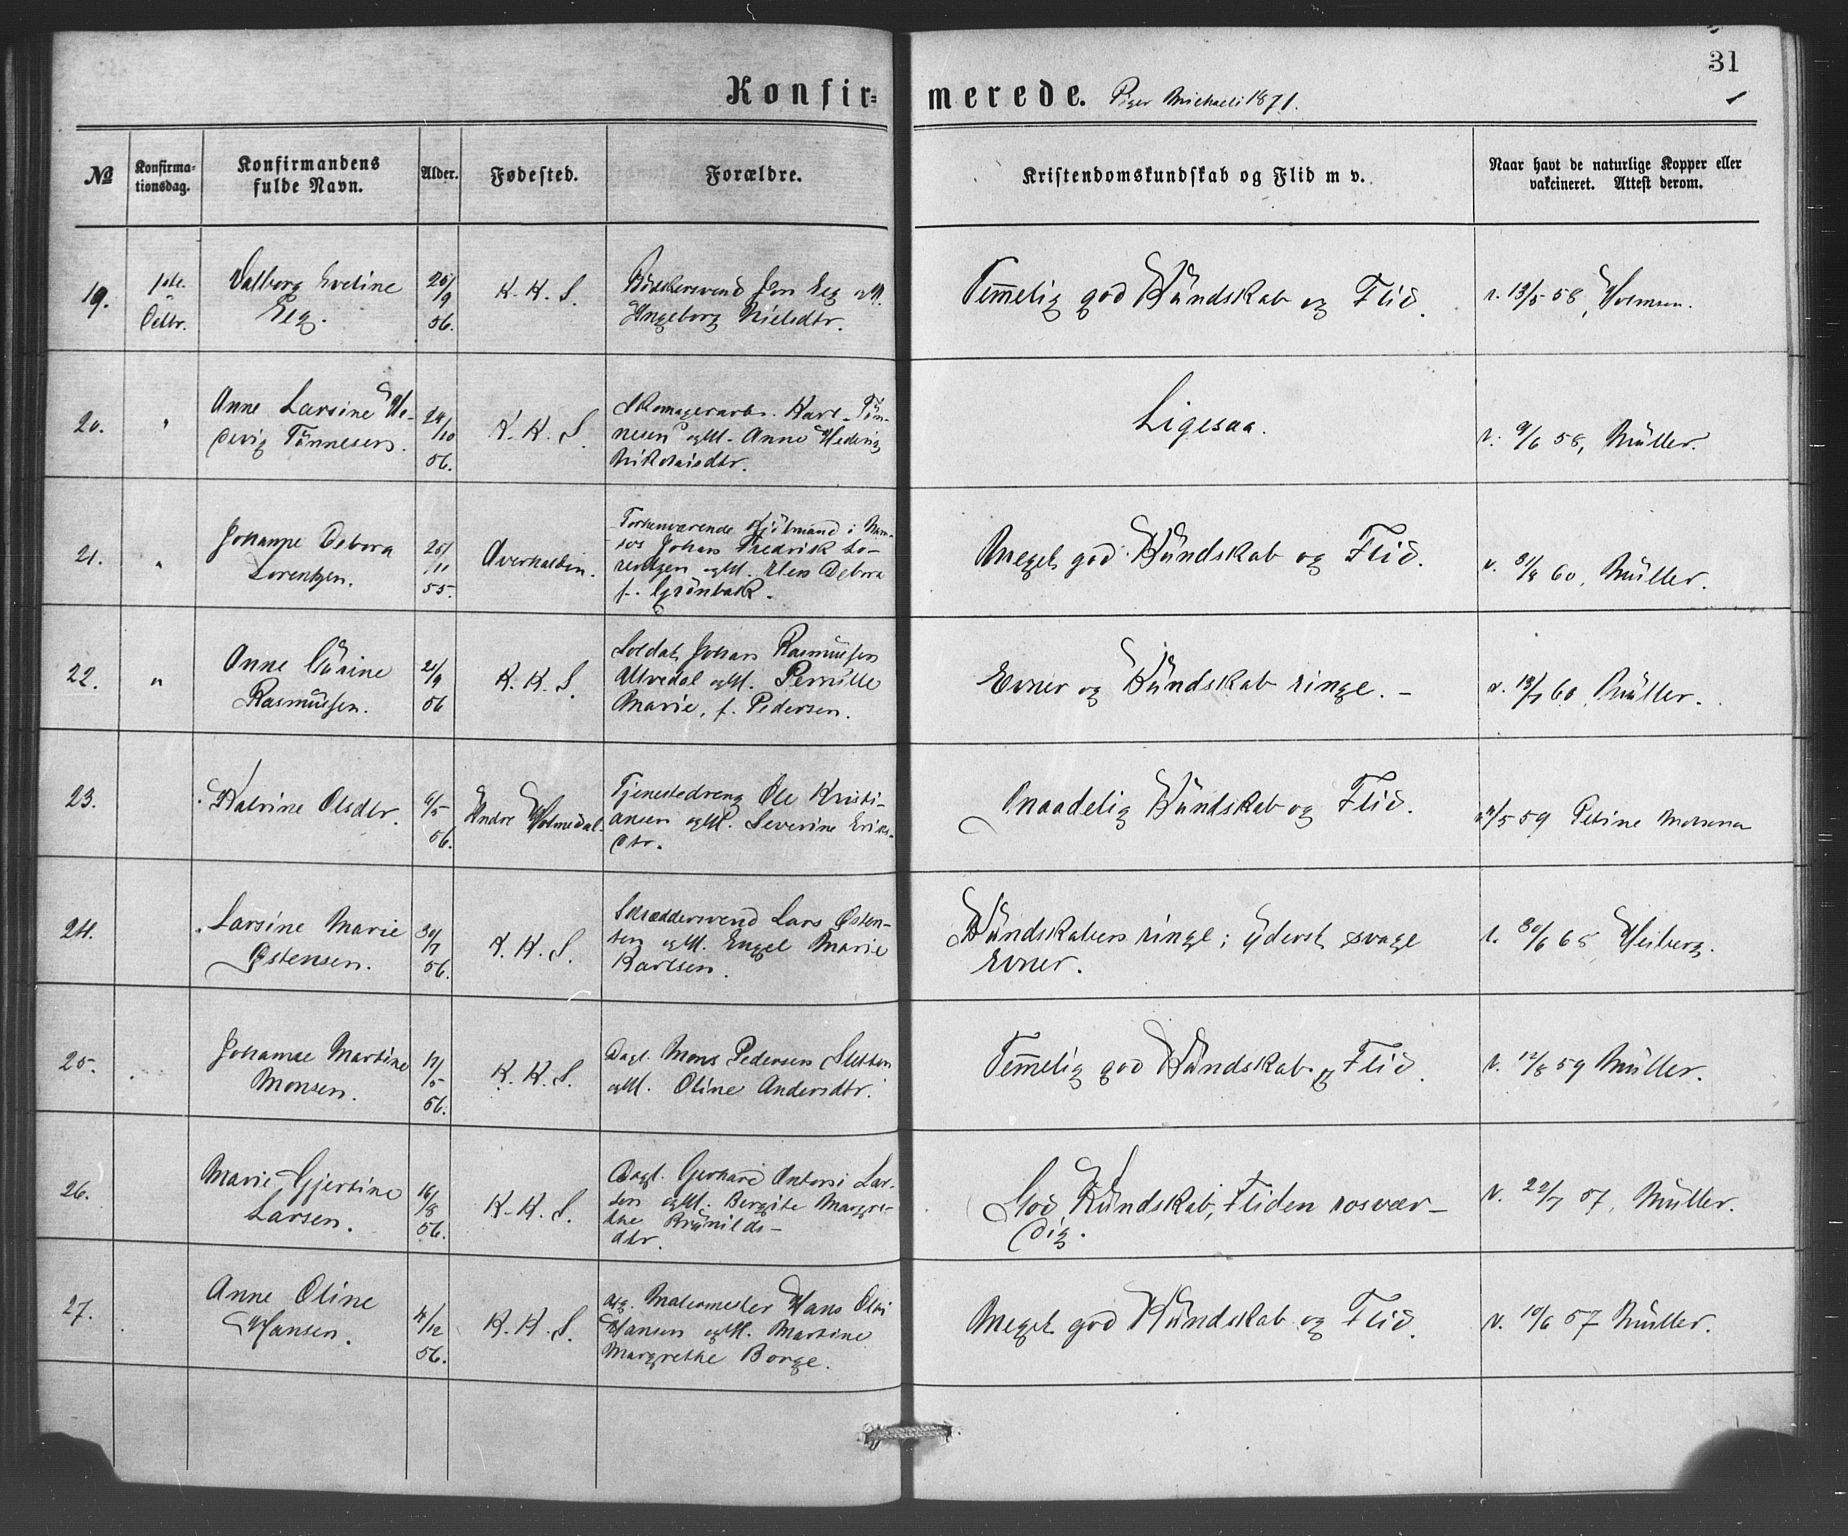 31
Konfir- merede. Piger Michaeli 1871.
№
Konfirma-
tionsdag.
Konfirmandens
fulde Navn.
Alder.
Fødested.
Forældre.
Kristendomskundskab og Flid m v.
Naar havt de naturlige Kopper eller
vakcineret. Attest derom.
19.
1ste
Octbr.
Valborg Eveline
Eeg.
20/
/9
56.
K. K. S.
Eeg
Ingeborg Nielsdtr.
Temmelig god Kundskab og Flid.
v. 13/5 58, Holmsen.
20.
"
Anne Larsine He-
devig Tønnesen.
24/
/10
56.
K. K. S.
Skomagerarb. Karl Tøn-
nesen og H. Anne Hedevig
Nikolaisdtr.
Ligesaa.
v. 9/6 58, Müller.
21.
"
Johanne Debora
Lorentzen.
25/
/11
55.
Overhalden.
Forhenværende Kjøbmand i Nam-
sos Johan Fredrik Lo-
rentzen og H. Debora
f. Grönbæk.
Meget god Kundskab og Flid.
v. 31/8 60, Müller.
22.
"
Anne Rasmussen.
21/
/9
56
K. K. S.
Soldat Johan Rasmussen
og H. Pernille
Marie, f. Pedersen.
Evner og Kundskab ringe. –
v. 13/7 60, Müller.
23.
Katrine Olsdtr.
6/
/5
56.
Indre Holmedal.
Tjenestedreng Ole Kristi-
ansen og H. Severine Eriks-
dtr.
Maadelig Kundskab og Flid.
/5 59 Petine
24.
Larsine Marie
Østensen.
30/
/7
56.
K. K. S.
Skræddersvend Lars Østen-
sen og H. Engel Marie
Karlsen.
Kundskaben ringe; yderst svage
Evner.
v. 30/6 65 Heiberg.
25.
Johanne Martine
Monsen.
17/
/5
56.
K. K. S.
Dagl. Mons Pedersen Sletten
og H. Oline Andersdtr.
Temmelig god Kundskab og Flid.
v. 12/8 59 Müller.
26.
Marie Gjertine
Larsen.
16/
/8
56.
K. K. S.
Dagl. Gerhard Antoni Lar-
sen og H. Bergite Margre-
the Brynilds-
dtr.
God Kundskab, Fliden rosvær-
dig.
v. 22/7 57, Müller.
27.
Anne Oline
Hansen.
4/
/12
56.
K. K. S.
Malermester Hans Olai
Hansen og H. Martine
Margrethe Borge.
Meget god Kundskab og Flid.
v. 10/6 57 Müller.